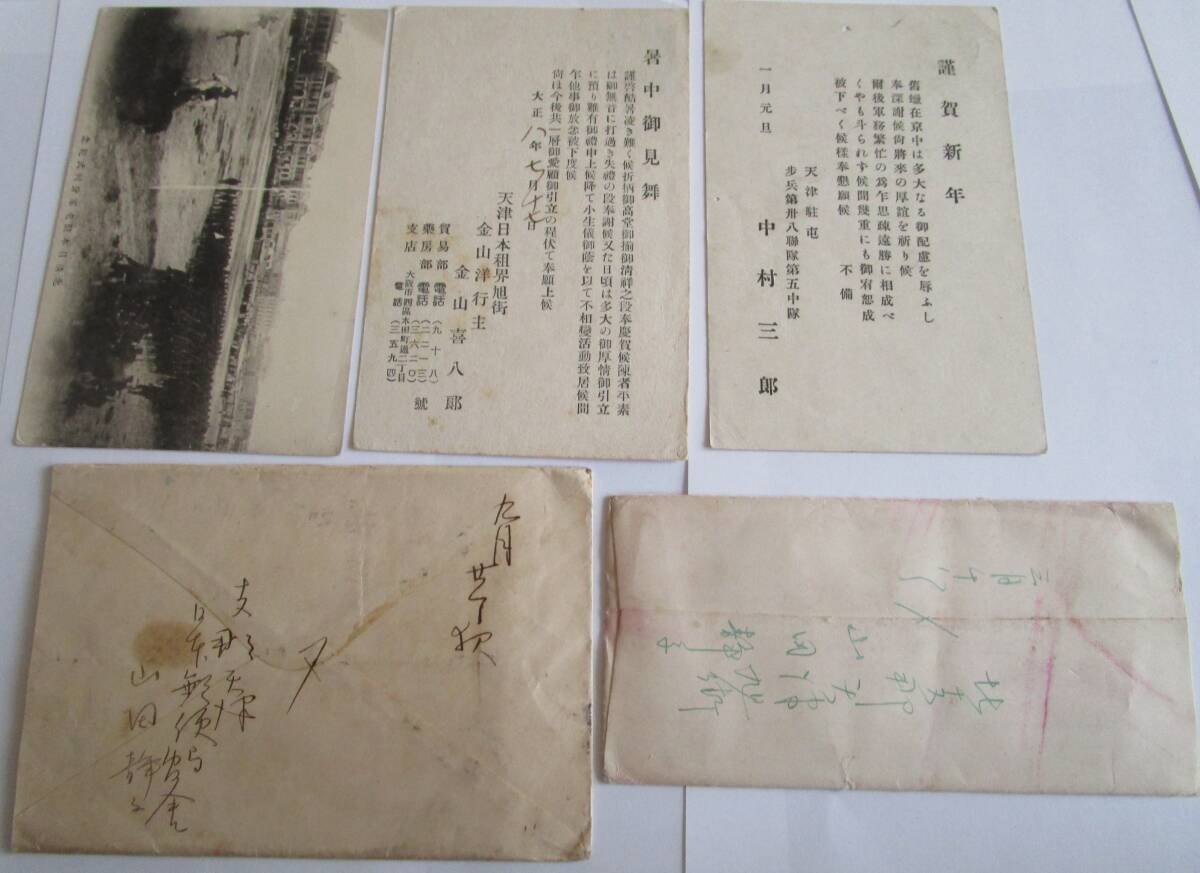 謹賀新年
舊臘在京中は多大なる御配慮を辱ふし
奉深謝候尙將來の厚誼を祈り候
爾後軍務繁忙の爲乍思疎遠勝に相成べ
くやも斗られず候間幾重にも御宥恕成
被下べく候樣奉懇願候 不備
一月元旦
天津駐屯
步兵第卅八聯隊第五中隊
中村三郎
暑中御見舞
謹啓酷暑凌き難く候折柄御高堂御揃御淸祥之段奉慶賀候陳者平素
は御無音に打過き失禮の段奉謝候又た日頃は多大の御厚情御引立
に預り難有御禮申上候降て小生儀御蔭を以て不相變活動致居候間
乍他事御放念被下度候
尙ほ今後共一層御愛顧御引立の程伏て奉願上候
大正八年七月十七日
天津日本租界旭街
金山洋行主
金山喜八郎
貿易部 電話(九十八)
藥房部 電話(二二一三)號
支店 大阪市西區本田町通二丁目
電話(三五九四)
九月廿一日夜
〆
支那天津
日本郵便局官舍
山田静子
三月十八
〆
北支那
天津
山田静子